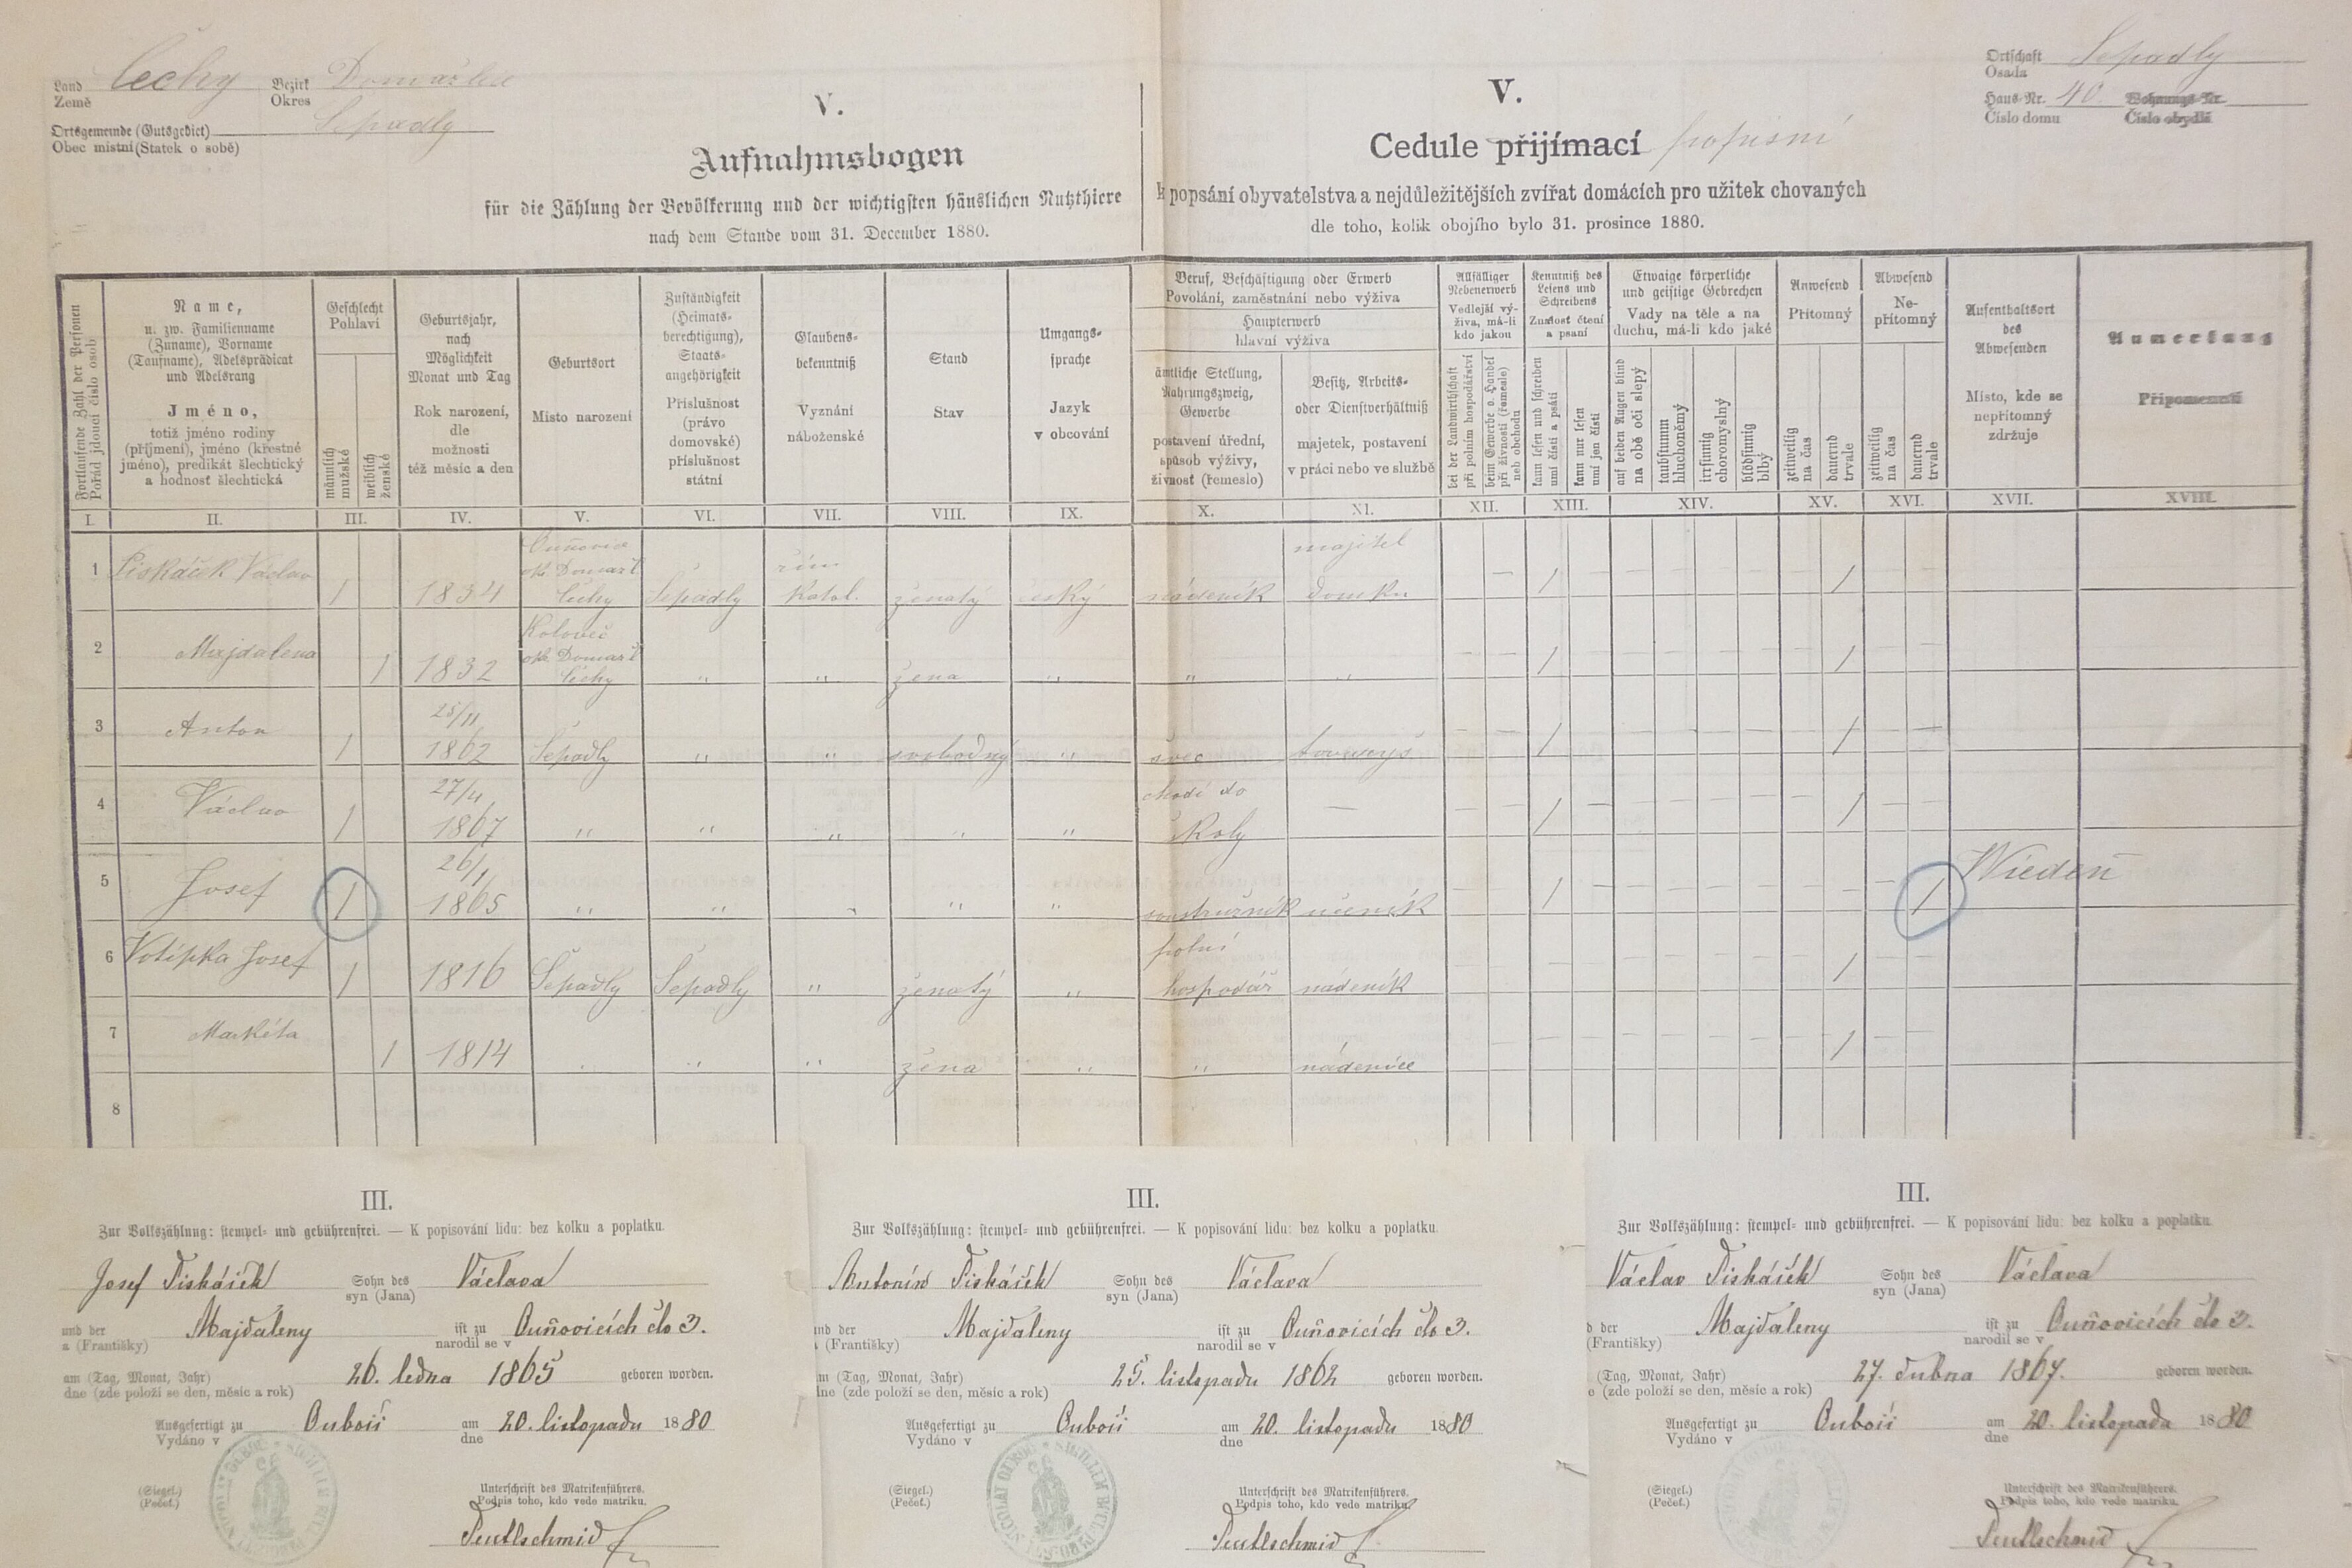 Land Čechy Bezirk Domažlice
Země Okres
Ortsgemeinde (Gutsgebiet) Sepadly
Obec mistní (Statek o sobě)
V.
Aufnahmsbogen
für die Zählung der Bevölkerung und der wichtigsten häuslichen Nutzthiere
nach dem Stande vom 31. December 1880.
V.
Cedule přijímací popisní
k popsání obyvatelstva a nejdůležitějších zvířat domácích pro užitek chovaných
dle toho, kolik obojího bylo 31. prosince 1880.
Ortschaft Sepadly
Osada
Haus-Nr. 40. Wohnungs-Nr.
Číslo domu Číslo obydlí
Fortlaufende Zahl der Personen
Pořád jdoucí číslo osob
Name,
u. zw. Familienname
(Zuname), Vorname
(Taufname), Adelsprädicat
und Adelsrang
Jméno,
totiž jméno rodiny
(příjmení), jméno (křestné
jméno), predikát šlechtický
a hodnosť šlechtická
Geschlecht
Pohlaví
männlich
mužské
weiblich
ženské
Geburtsjahr,
nach
Möglichkeit
Monat und Tag
Rok narození,
dle
možnosti
též měsíc a den
Geburtsort
Misto narození
Zuständigkeit
(Heimats-
berechtigung),
Staats-
angehörigkeit
Příslušnost
(právo
domovské)
příslušnost
státní
Glaubens-
bekenntniß
Vyznání
náboženské
Stand
Stav
Umgangs-
sprache
Jazyk
v obcování
Beruf, Beschäftigung oder Erwerb
Povolání, zaměstnání nebo výživa
Haupterwerb
hlavní výživa
ämtliche Stellung,
Nahrungszweig,
Gewerbe
postavení úřední,
spůsob výživy,
živnosť (řemeslo)
Besitz, Arbeits-
oder Dienstverhältniß
majetek, postavení
v práci nebo ve službě
Allfälliger
Nebenerwerb
Vedlejší vý-
živa, má-li
kdo jakou
bei der Landwirthschaft
při polním hospodářství
beim Gewerbe o. Handel
při živnosti (řemesle)
neb obchodu
Kenntniß des
Lesens und
Schreibens
Známost čtení
a psaní
kann lesen und schreiben
umí čísti a psáti
kann nur lesen
umí jen čísti
Etwaige körperliche
und geistige Gebrechen
Vady na těle a na
duchu, má-li kdo jaké
auf beiden Augen blind
na obě oči slepý
taubstumm
hluchoněmý
irrsinnig
choromyslný
blödsinnig
blbý
Anwesend
Přítomný
zeitweilig
na čas
dauernd
trvale
Abwesend
Ne-
přítomný
zeitweilig
na čas
dauernd
trvale
Aufenthaltsort
des
Abwesenden
Misto, kde se
nepřítomný
zdržuje
Anmerkung
Připomenutí
I. II. III. IV. V. VI. VII. VIII. IX. X. XI. XII. XIII. XIV. XV. XVI. XVII. XVIII.
Ouňovice řím. majitel
1 Piskáček Václav ok. Domažl.
1 1834 Čechy Sepadly katol. ženatý český nádeník domku — 1 1
Koloveč
2 Majdalena ok. Domažl.
1 1832 Čechy " " žena " " " 1 1
25/11
3 Anton 1 1862 Sepadly " " svobodný " švec tovaryš 1 1
27/4 chodí do
4 Václav 1 1867 " " " " " školy — 1 1
26/1
5 Josef 1 1865 " " " " " soustružník učeník 1 1 Wiedeň
polní
6 Votipka Josef 1 1816 Sepadly Sepadly " ženatý " hospodář nádeník 1
7 Markéta 1 1814 " " " žena " " nádenice 1
8
III.
Zur Volkszählung: stempel- und gebührenfrei. — K popisování lidu: bez kolku a poplatku.
Josef Piskáček Sohn des Václava
syn (Jana)
und der Majdaleny ist zu Ouňovicích čís 3.
a (Františky) narodil se v
am (Tag, Monat, Jahr) 26. ledna 1865 geboren worden.
dne (zde položí se den, měsíc a rok)
Ausgefertigt zu Ouboči am 20. listopadu 1880
Vydáno v dne
(Siegel.) Unterschrift des Matrikenführers.
(Pečeť.) Podpis toho, kdo vede matriku.
Teutlschmid
III.
Zur Volkszählung: stempel- und gebührenfrei. — K popisování lidu: bez kolku a poplatku.
Antonín Piskáček Sohn des Václava
syn (Jana)
und der Majdaleny ist zu Ouňovicích čís 3.
(Františky) narodil se v
(Tag, Monat, Jahr) 25. listopadu 1862 geboren worden.
dne (zde položí se den, měsíc a rok)
Ausgefertigt zu Ouboči am 20. listopadu 1880
Vydáno v dne
(Siegel.) Unterschrift des Matrikenführers.
(Pečeť.) Podpis toho, kdo vede matriku.
Teutlschmid
III.
Zur Volkszählung: stempel- und gebührenfrei. — K popisování lidu: bez kolku a poplatku.
Václav Piskáček Sohn des Václava
syn (Jana)
der Majdaleny ist zu Ouňovicích čís 3.
(Františky) narodil se v
(Tag, Monat, Jahr) 27. dubna 1867. geboren worden.
e (zde položí se den, měsíc a rok)
Ausgefertigt zu Ouboči am 20. listopadu 1880
Vydáno v dne
(Siegel.) Unterschrift des Matrikenführers.
(Pečeť.) Podpis toho, kdo vede matriku.
Teutlschmid